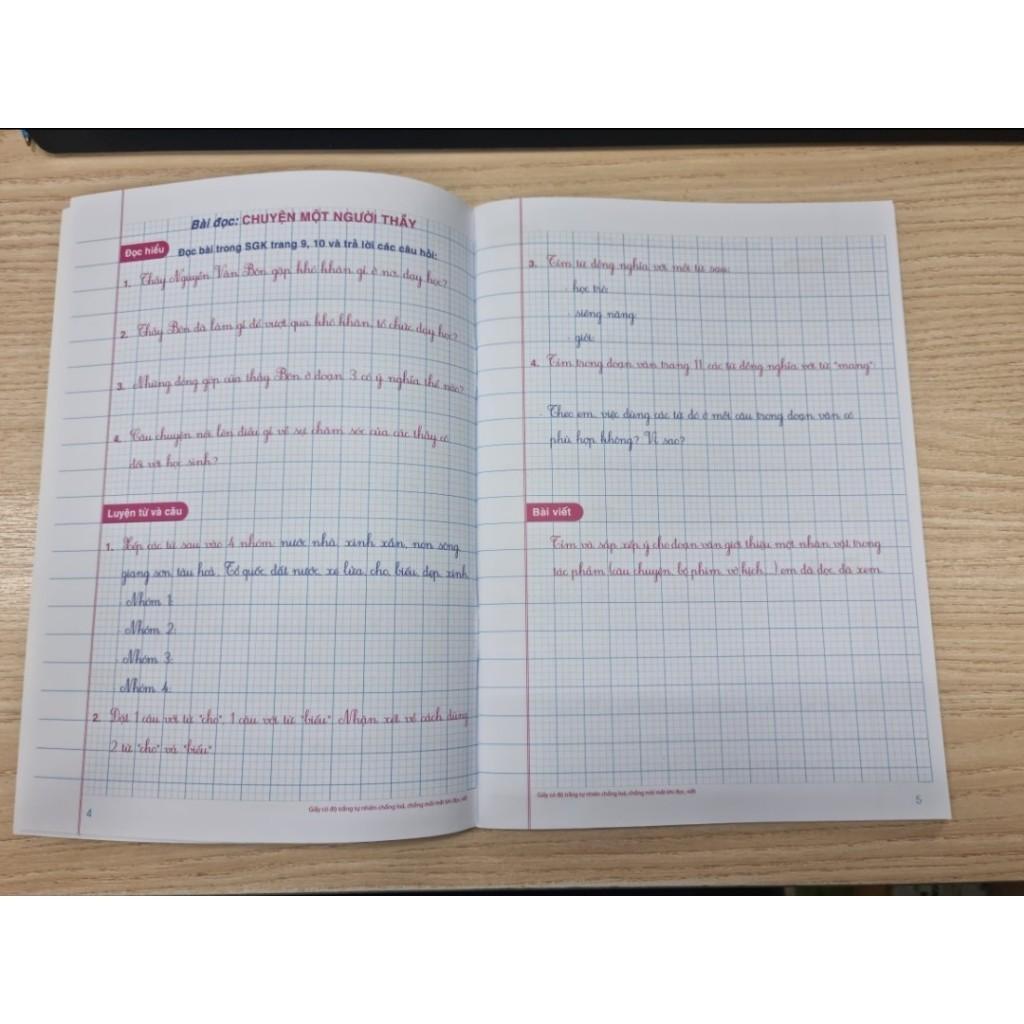 Bài đọc: CHUYỆN MỘT NGƯỜI THẦY
Đọc hiểu
Đọc bài trong SGK trang 9, 10 và trả lời các câu hỏi:
1. Thầy Nguyễn Văn Bôn gặp khó khăn gì ở nơi dạy học?
2. Thầy Bôn đã làm gì để vượt qua khó khăn, tổ chức dạy học?
3. Những đóng góp của thầy Bôn ở đoạn 3 có ý nghĩa thế nào?
4. Câu chuyện nói lên điều gì về sự chăm sóc của các thầy cô
đối với học sinh?
Luyện từ và câu
1. Xếp các từ sau vào 4 nhóm: nước nhà, xinh xắn, non sông,
giang sơn, tàu hoả, Tổ quốc, đất nước, xe lửa, cho, biếu, đẹp, xinh
· Nhóm 1:
· Nhóm 2:
· Nhóm 3:
· Nhóm 4:
2. Đặt 1 câu với từ "cho", 1 câu với từ "biếu". Nhận xét về cách dùng
2 từ "cho" và "biếu".
4
Giấy có độ trắng tự nhiên chống loá, chống mỏi mắt khi đọc, viết
3. Tìm từ đồng nghĩa với mỗi từ sau:
· học trò:
· siêng năng:
· giỏi:
4. Tìm trong đoạn văn trang 11 các từ đồng nghĩa với từ "mang":
· Theo em, việc dùng các từ đó ở mỗi câu trong đoạn văn có
phù hợp không? Vì sao?
Bài viết
Tìm và sắp xếp ý cho đoạn văn giới thiệu một nhân vật trong
tác phẩm (câu chuyện, bộ phim, vở kịch,...) em đã đọc, đã xem.
Giấy có độ trắng tự nhiên chống loá, chống mỏi mắt khi đọc, viết
5